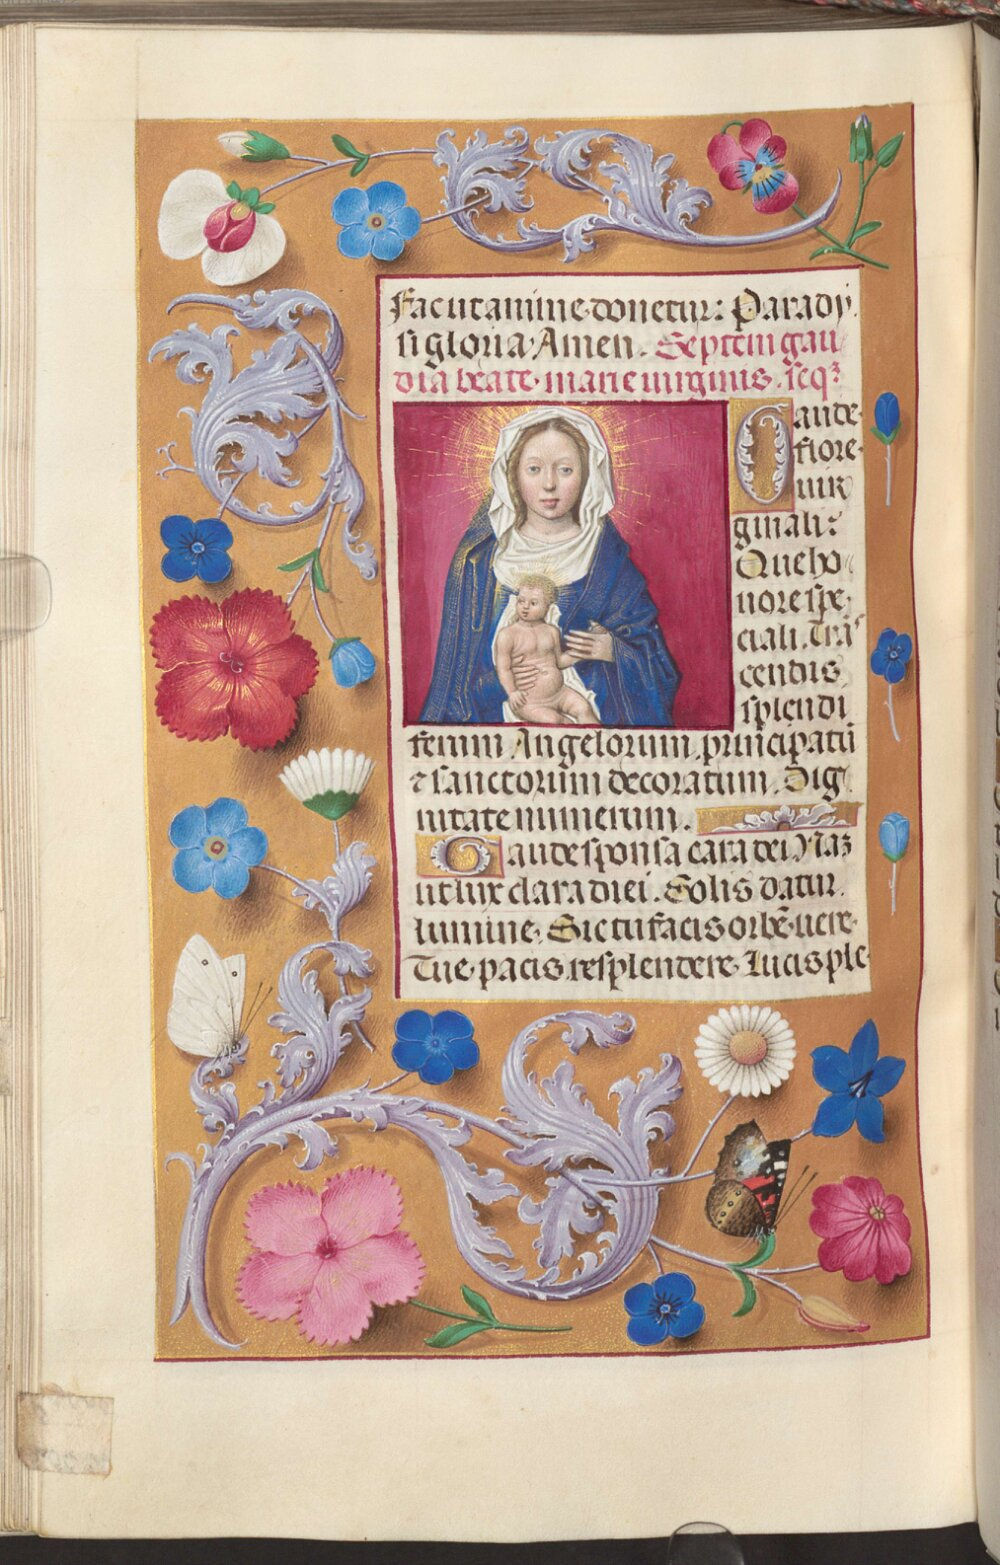 fac ut anime donetur: Parady
si gloria. Amen. Septem gau
dia beate marie virginis. seqꝫ
Gaude
flore
vir
ginali:
Que ho
nore spe
ciali. Trā
cendis
splendi
ferum Angelorum principatū
⁊ sanctorum decoratum. Dig
nitate numerum.
Gaude sponsa cara dei Naꝫ
ut lux clara diei. Solis datur
lumine. Sic tu facis orbē vere
Tue pacis resplendere. Lucis ple